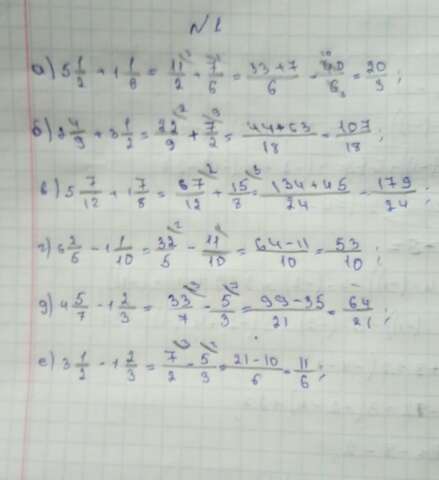 №1
а) 5 1/2 + 1 1/6 = 11/2 + 7/6 = 33+7/6 = 40/6 = 20/3;
б) 2 4/9 + 3 1/2 = 22/9 + 7/2 = 44+63/18 = 107/18;
в) 5 7/12 + 1 7/8 = 67/12 + 15/8 = 134+45/24 = 179/24;
г) 6 2/5 - 1 1/10 = 32/5 - 11/10 = 64-11/10 = 53/10;
д) 4 5/7 - 1 2/3 = 33/7 - 5/3 = 99-35/21 = 64/21;
е) 3 1/2 - 1 2/3 = 7/2 - 5/3 = 21-10/6 = 11/6;